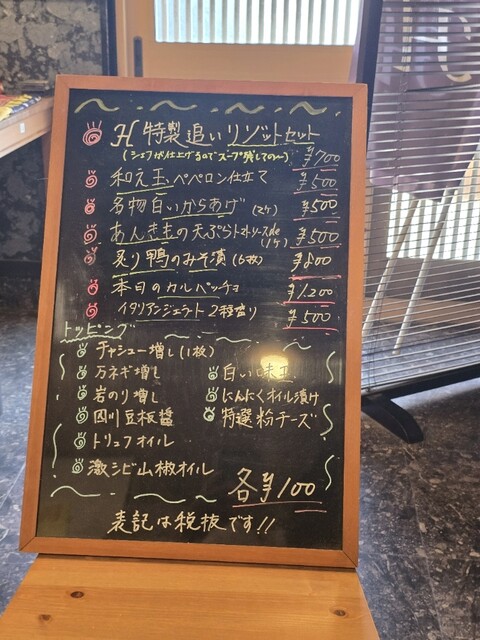 H 特製追いリゾットセット
(シェフが仕上げるのでスープ残しての〜) ¥700
和え玉 ペペロン仕立て ¥500
名物白いからあげ (2ケ) ¥500
あんき玉の天ぷらトマトソースde (1ケ) ¥500
炙り鴨のみそ漬 (6枚) ¥800
本日のカルパッチョ ¥1,200
イタリアンジェラート 2種盛り ¥500
トッピング
チャシュー増し (1枚)
万ネギ増し 白い味玉
岩のり増し にんにくオイル漬け
四川豆板醤 特選粉チーズ
トリュフオイル
激シビ山椒オイル
各¥100
表記は税抜です!!